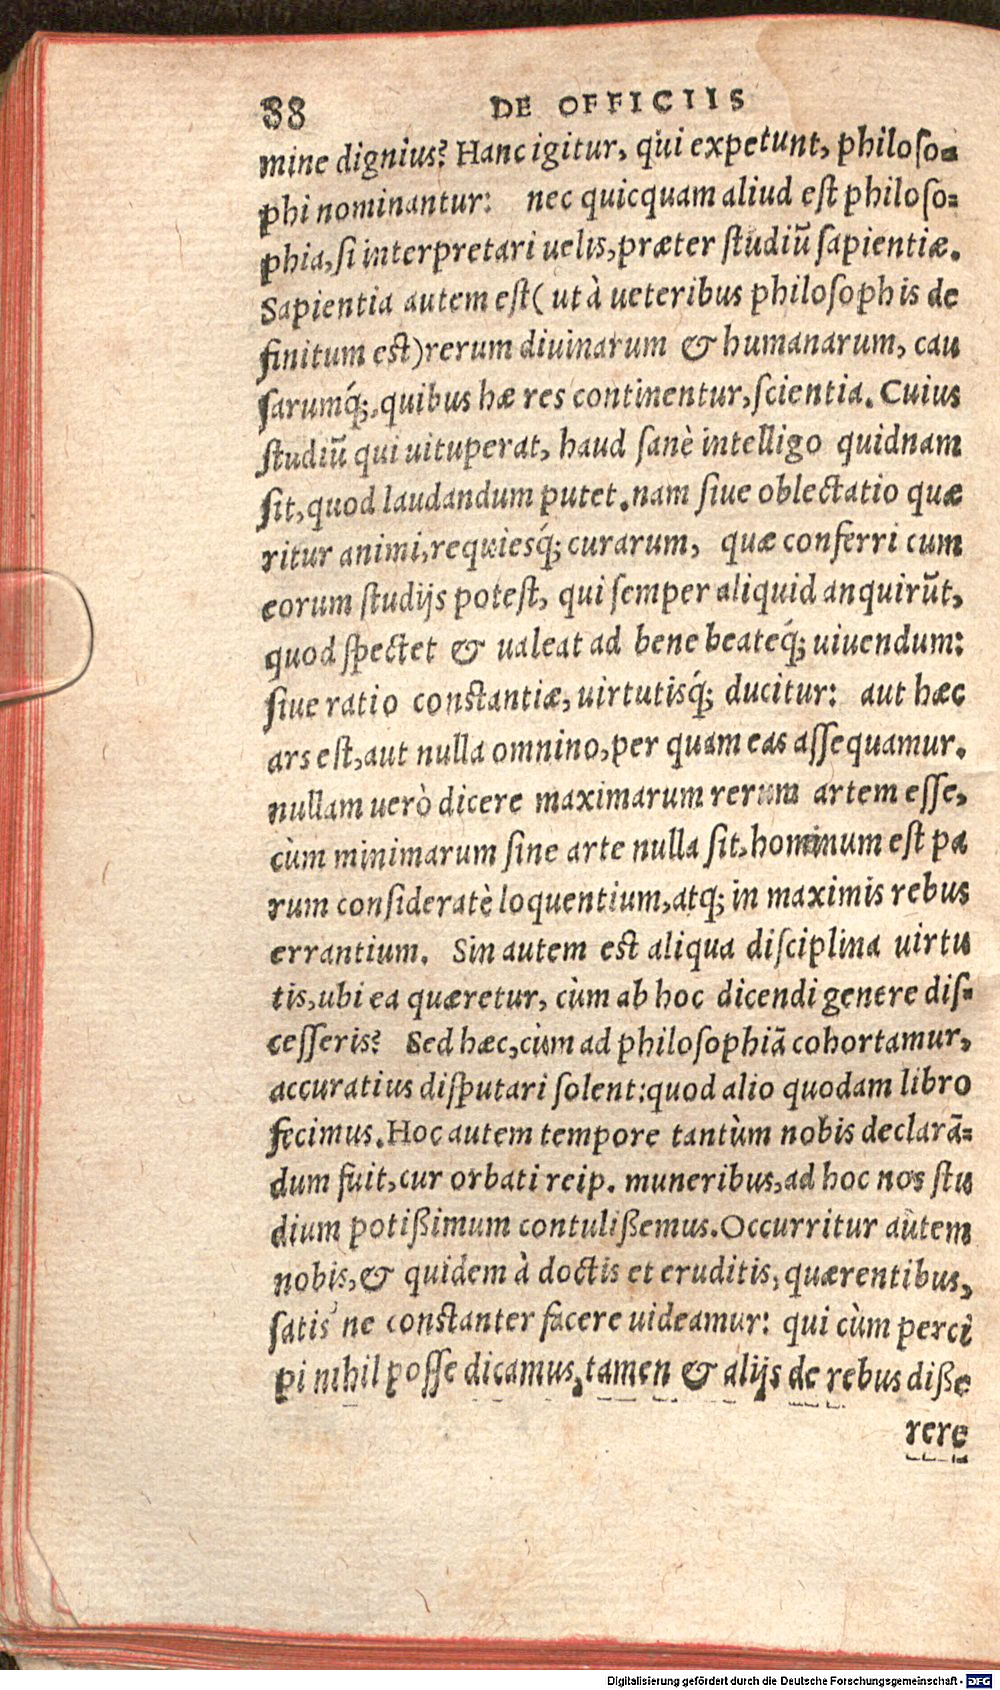 88 DE OFFICIIS
mine dignius? Hanc igitur, qui expetunt, philoso=
phi nominantur: nec quicquam aliud est philoso=
phia, si interpretari uelis, præter studiũ sapientiæ.
Sapientia autem est ( ut à ueteribus philosophis de
finitum est) rerum diuinarum & humanarum, cau
sarumq́;, quibus hæ res continentur, scientia. Cuius
studiũ qui uituperat, haud sanè intelligo quidnam
sit, quod laudandum putet. nam siue oblectatio quæ
ritur animi, requiesq́; curarum, quæ conferri cum
eorum studijs potest, qui semper aliquid anquirũt,
quod spectet & ualeat ad bene beateq́; uiuendum:
siue ratio constantiæ, uirtutisq́; ducitur: aut hæc
ars est, aut nulla omnino, per quam eas assequamur.
nullam uerò dicere maximarum rerum artem esse,
cùm minimarum sine arte nulla sit, hominum est pa
rum consideratè loquentium, atq; in maximis rebus
errantium. Sin autem est aliqua disciplina uirtu
tis, ubi ea quæretur, cùm ab hoc dicendi genere dis=
cesseris? Sed hæc, cùm ad philosophiã cohortamur,
accuratius disputari solent: quod alio quodam libro
fecimus. Hoc autem tempore tantùm nobis declarã=
dum fuit, cur orbati reip. muneribus, ad hoc nos stu
dium potißimum contulißemus. Occurritur autem
nobis, & quidem à doctis et eruditis, quærentibus,
satis ne constanter facere uideamur: qui cùm perci
pi nihil posse dicamus, tamen & alijs de rebus diße
rere
Digitalisierung gefördert durch die Deutsche Forschungsgemeinschaft - DFG